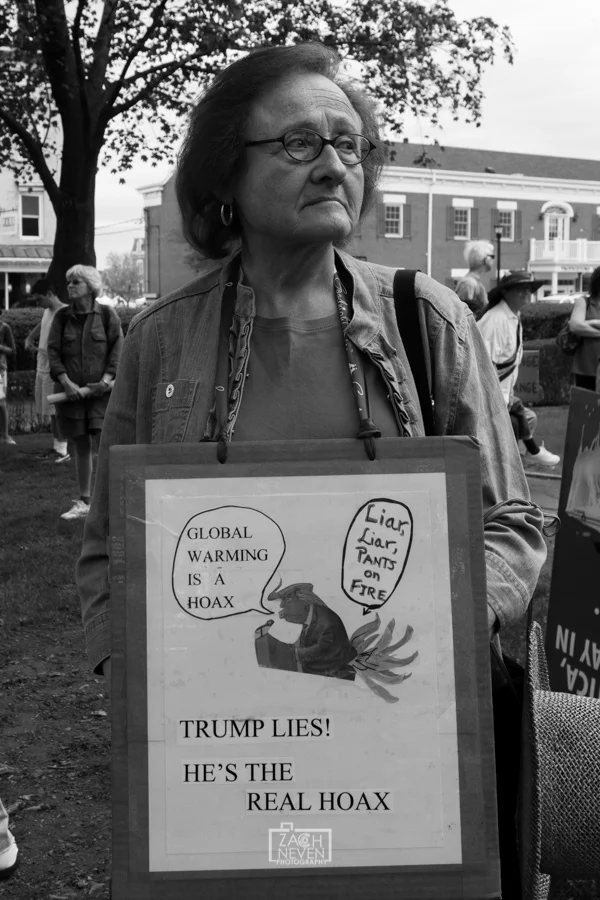 GLOBAL
WARMING
IS A
HOAX
Liar,
Liar,
PANTS
on
FIRE
TRUMP LIES!
HE'S THE
REAL HOAX
ZACH
NEVEN
PHOTOGRAPHY
AY IN
ICA,